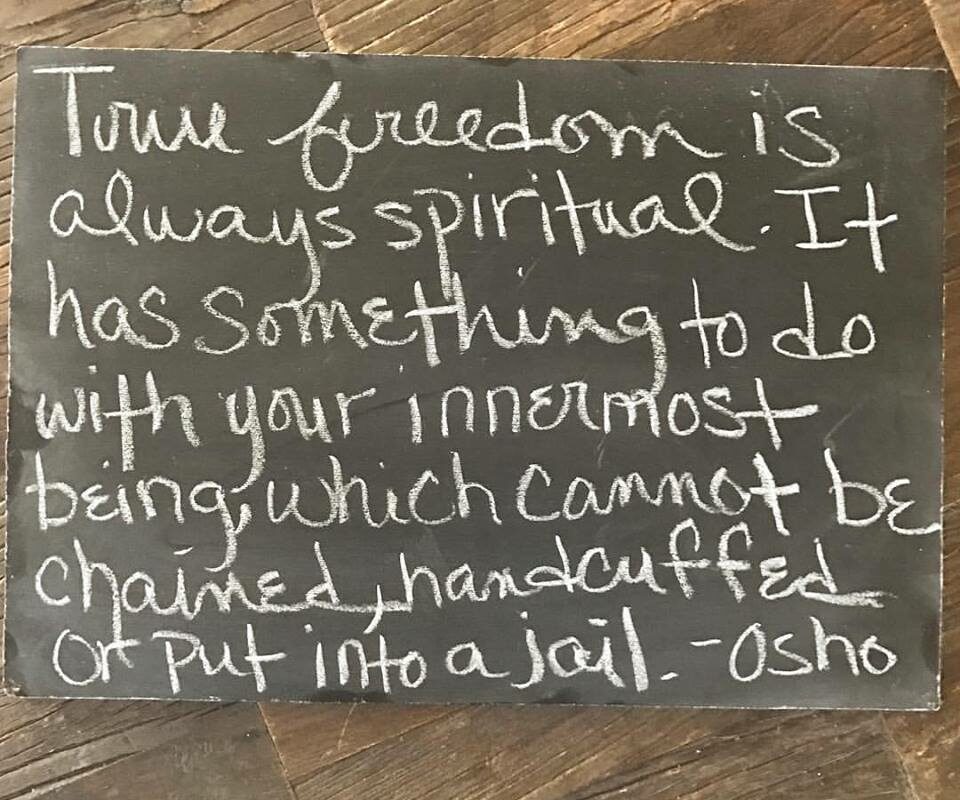 True freedom is
always spiritual. It
has something to do
with your innermost
being, which cannot be
chained, handcuffed
or put into a jail. -Osho